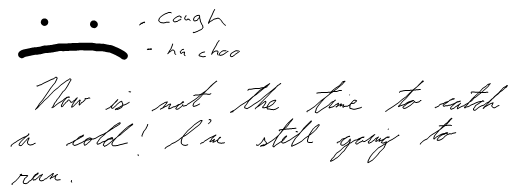 - cough
- ha choo
Now is not the time to catch
a cold! I'm still going to
run.